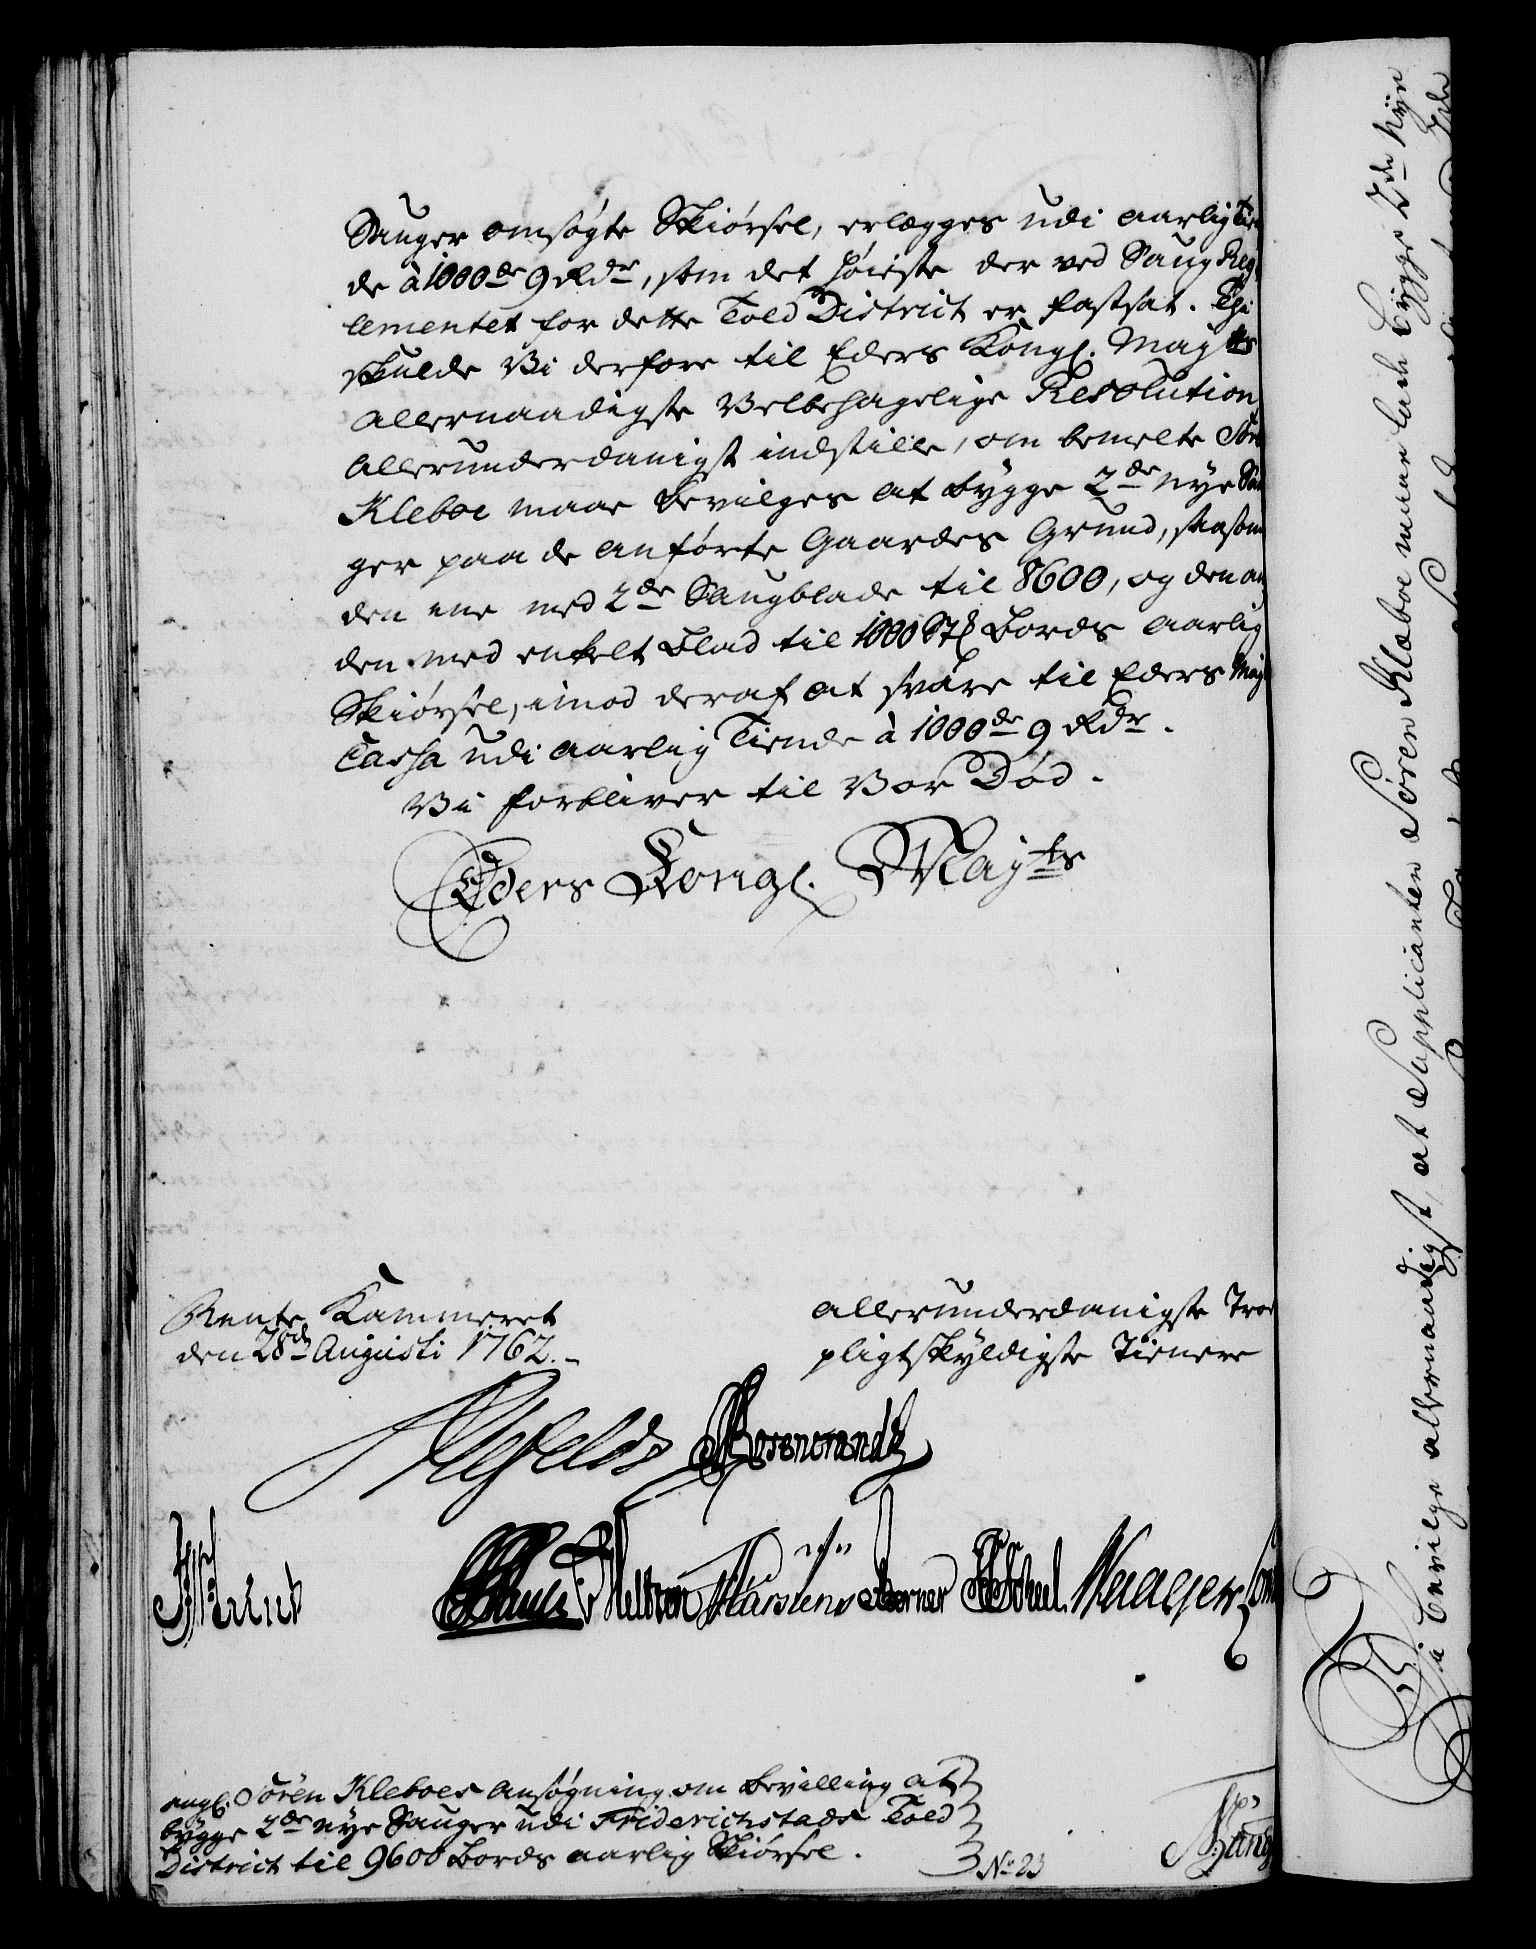 Sauger omsøgte Skiørsel, erlægges udi aarlig Tien
de à 1000de 9 Rdr, som det høieste der ved Saug Reg
lementet for dette Told District er fastsat. Thi
skulde Vi derfore til Eders Kongl. Mayts
allernaadigste Velbehagelige Resolution
allerunderdanigst indstille, om bemelte Sør
Kleboe maae bevilges at bygge 2de nye Sau
ger paa de anførte Gaardes Grund, saasom
den ene med 2de Saugblade til 8600, og den an
den med enkelt Blad til 1000 Stk Bords aarlig
Skiørsel, imod deraf at svare til Eders May
Cassa udi aarlig Tiende à 1000de 9 Rdr.
Vi forbliver til Vor Død.
Eders Kongl. Mayts
Rente Kammeret
den 28de Augusti 1762.
allerunderdanigste Troe
pligtskyldigste Tienere
Ahlefeldt Rosencrandtz
Holtzen Karstens Berner
angl. Søren Kleboes Ansøgning om Bevilling at
bygge 2de nye Sauger udi Friderichstads Told
District til 9600 Bords aarlig Skiørsel.
No 23
Vi bevilge allernaadigst, at Supplicanten Søren Kleboe maae lade bygge 2de nye